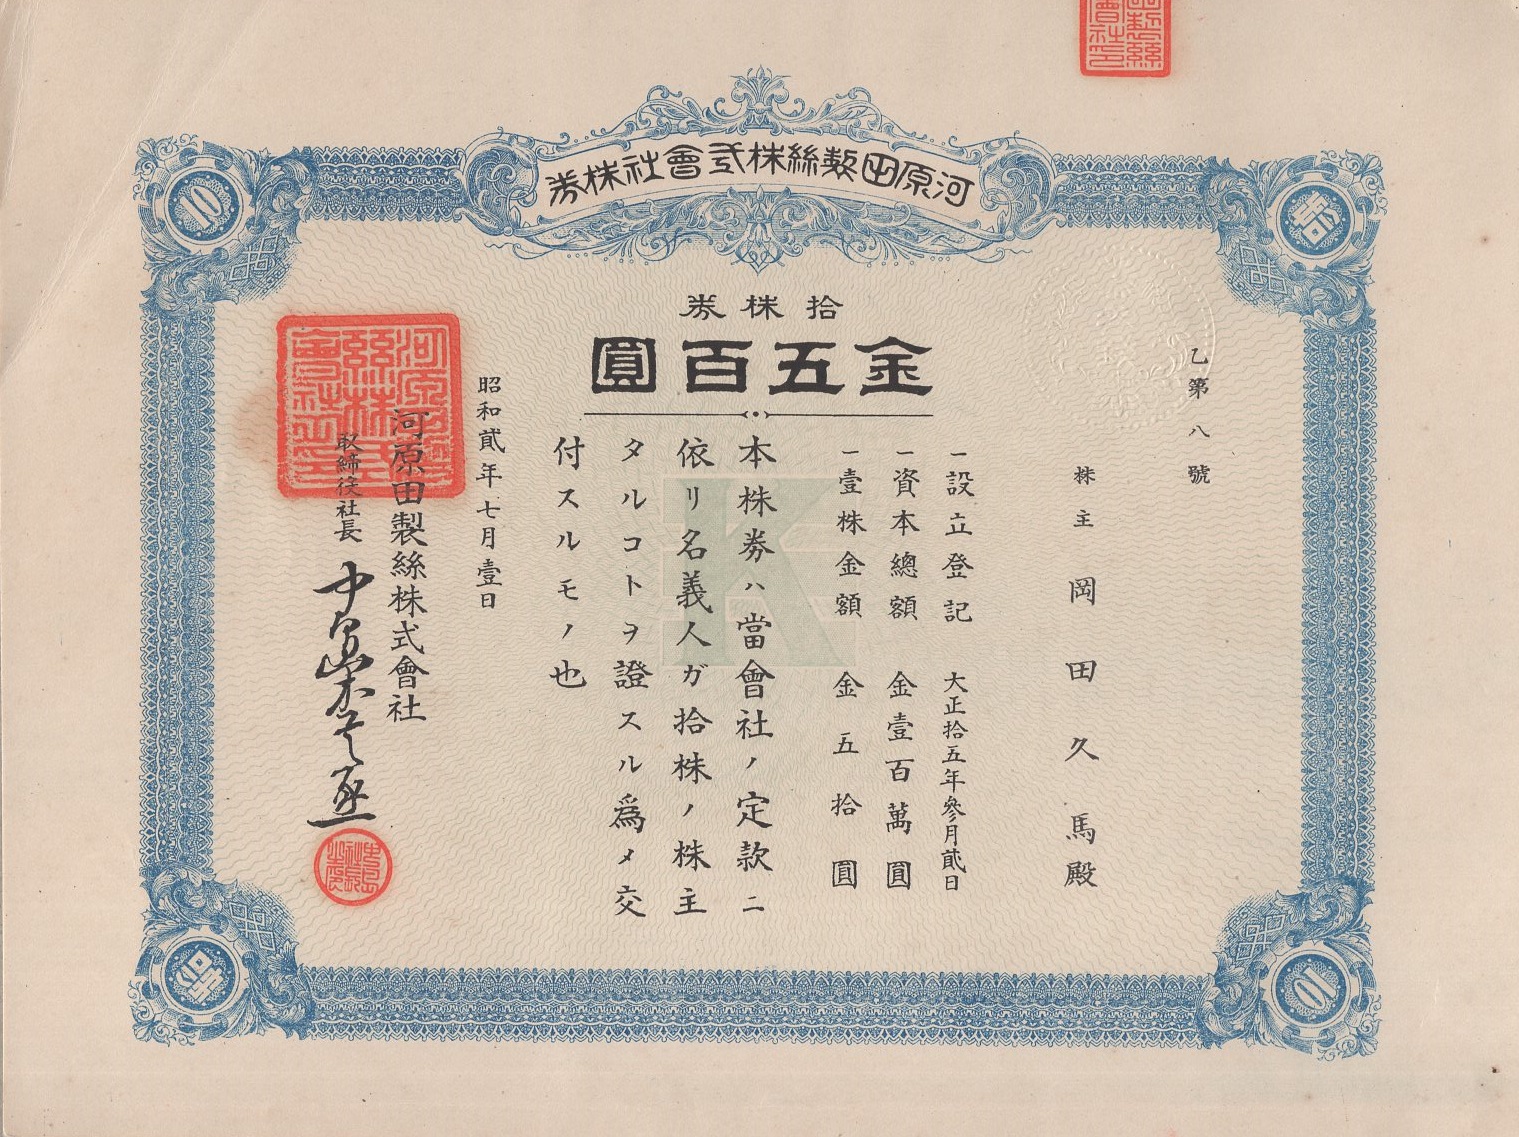 河原田製絲株式會社株券
10
拾
拾株券
金五百圓
乙第八號
株主 岡田久馬殿
一設立登記 大正拾五年參月貳日
一資本總額 金壹百萬圓
一壹株金額 金五拾圓
本株券ハ當會社ノ定款ニ
依リ名義人ガ拾株ノ株主
タルコトヲ證スル爲メ交
付スルモノ也
昭和貳年七月壹日
河原田製絲株式會社
取締役社長
K
拾
10